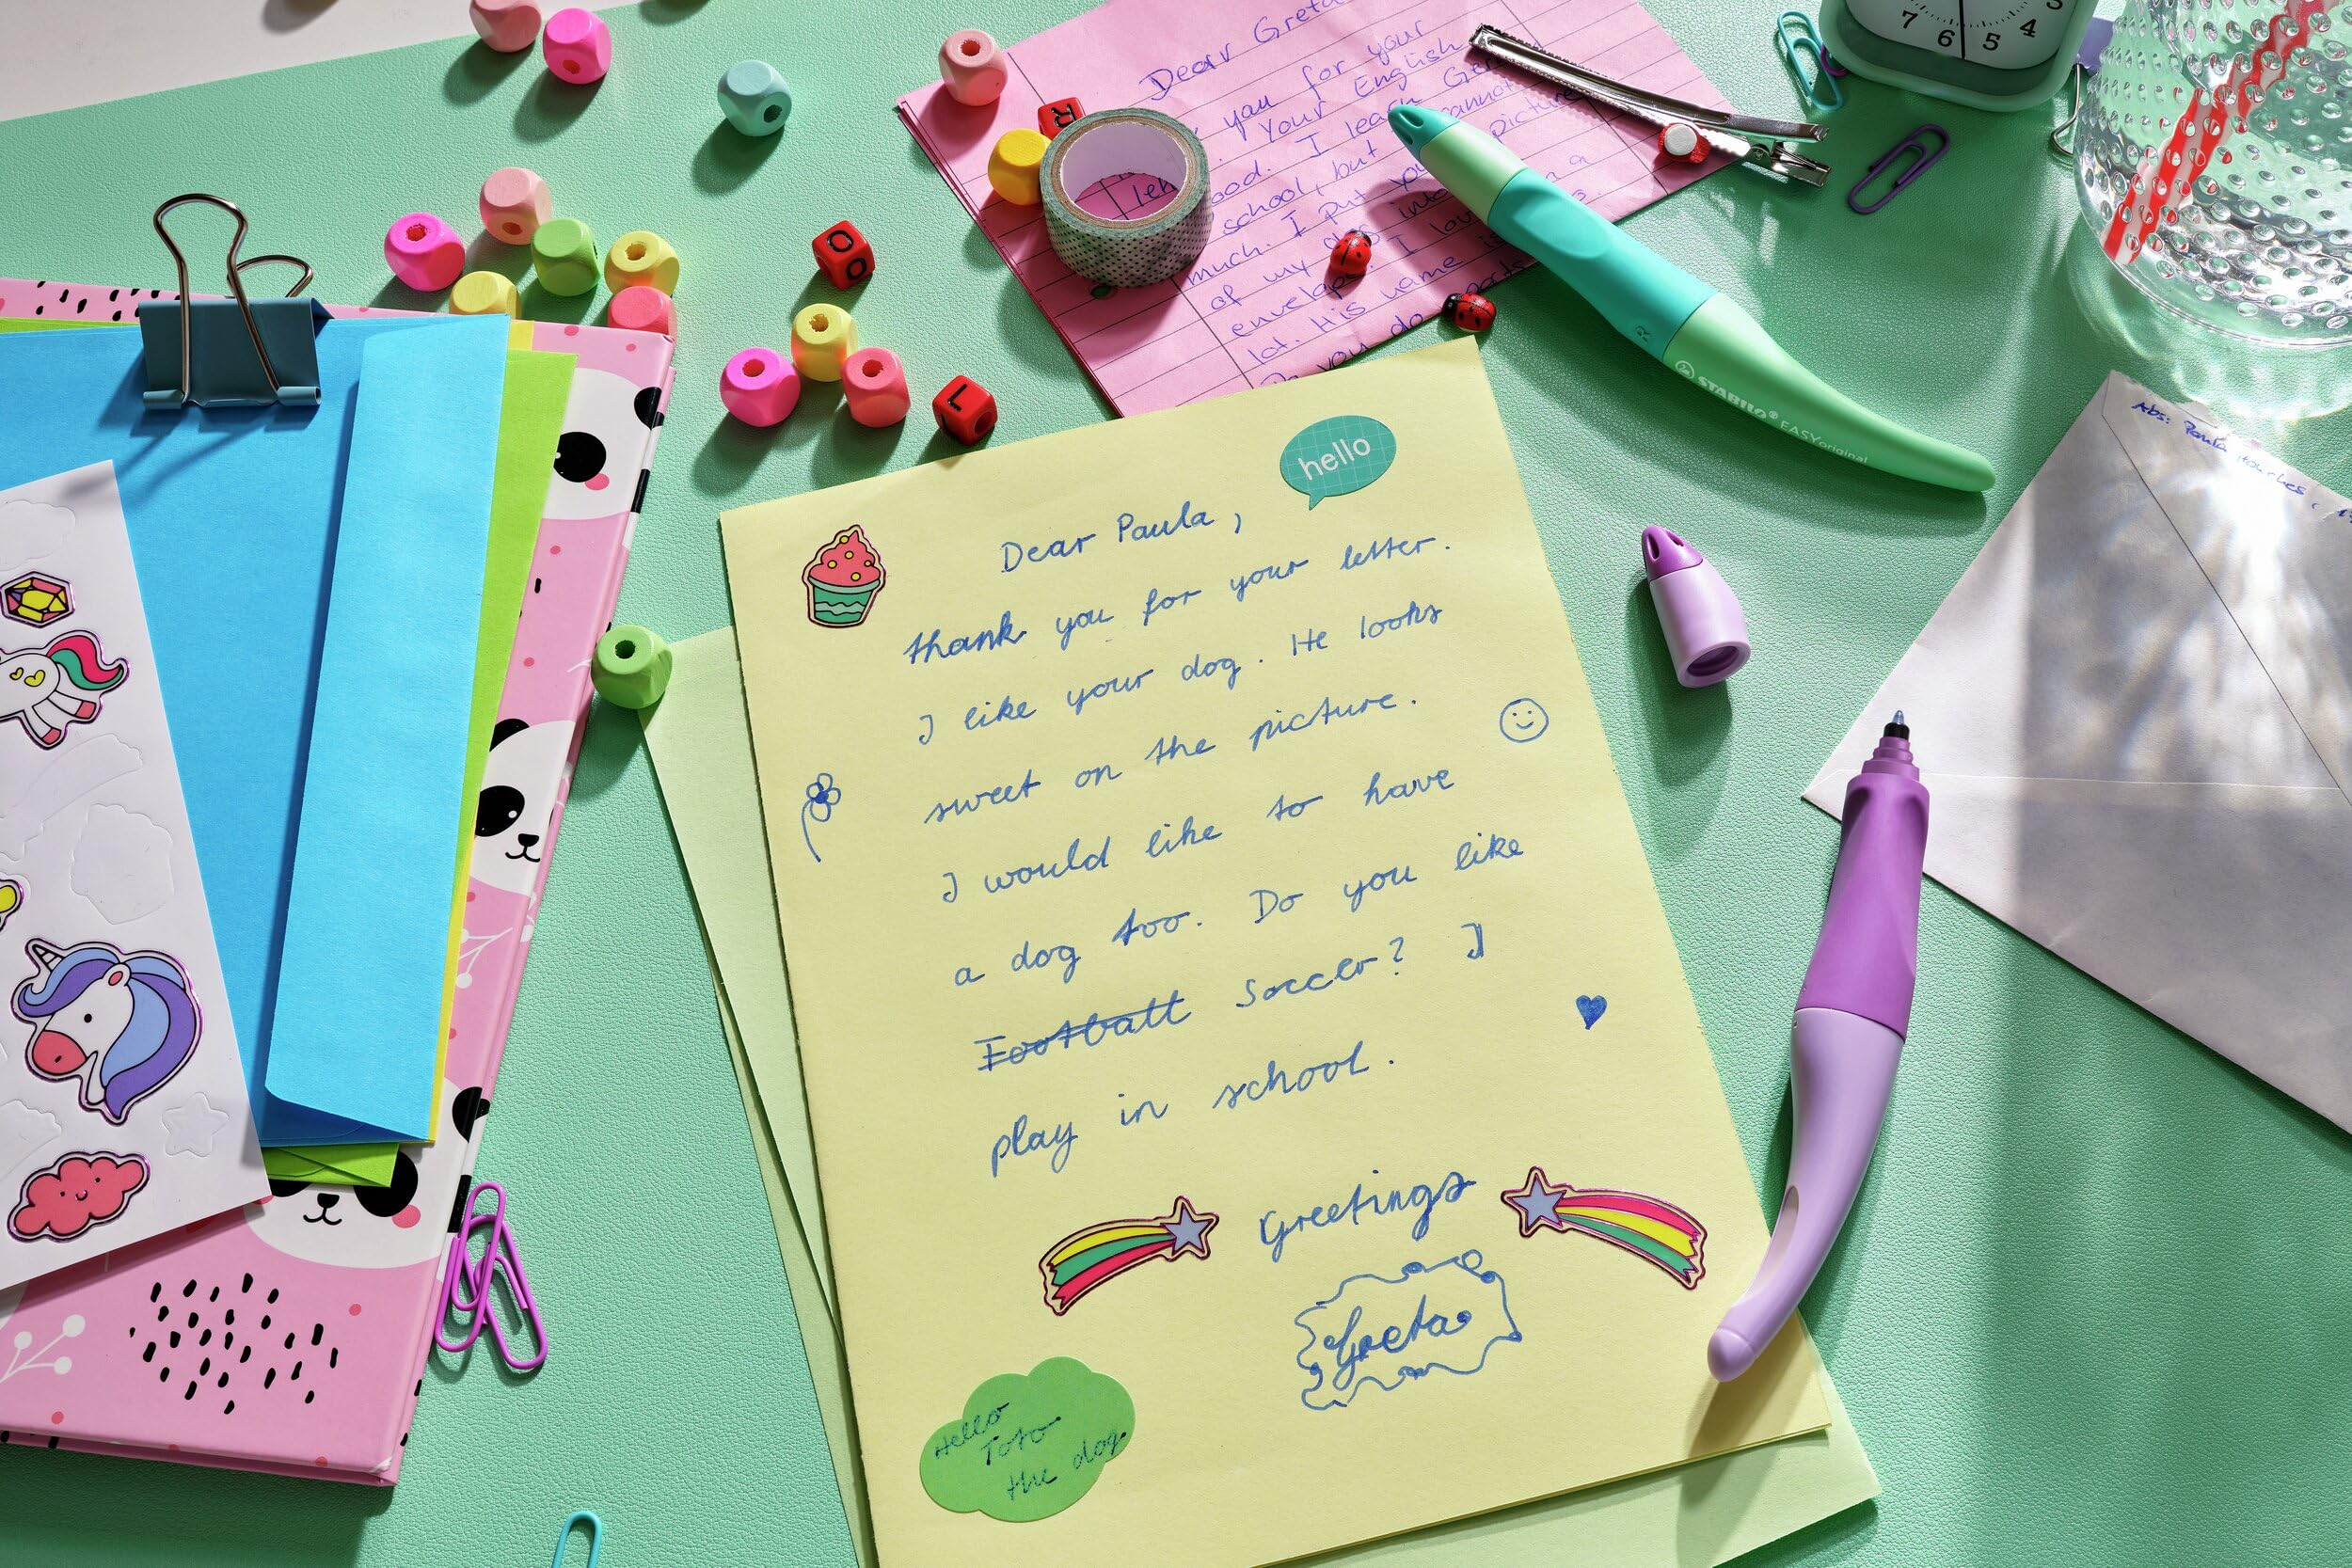 Dear Greta
you for your
Your English
good. I learn
school, but cannot
much. I put picture
of my dog into a
envelope. I love
lot. His name is
do sports
R
O
O
L
7
6
5
4
3
R
STABILO® EASYoriginal
Abs: Paula
hello
Dear Paula,
thank you for your letter.
I like your dog. He looks
sweet on the picture.
I would like to have
a dog too. Do you like
Football Soccer? I
play in school.
Greetings
Greta
Hello
Toto
the dog